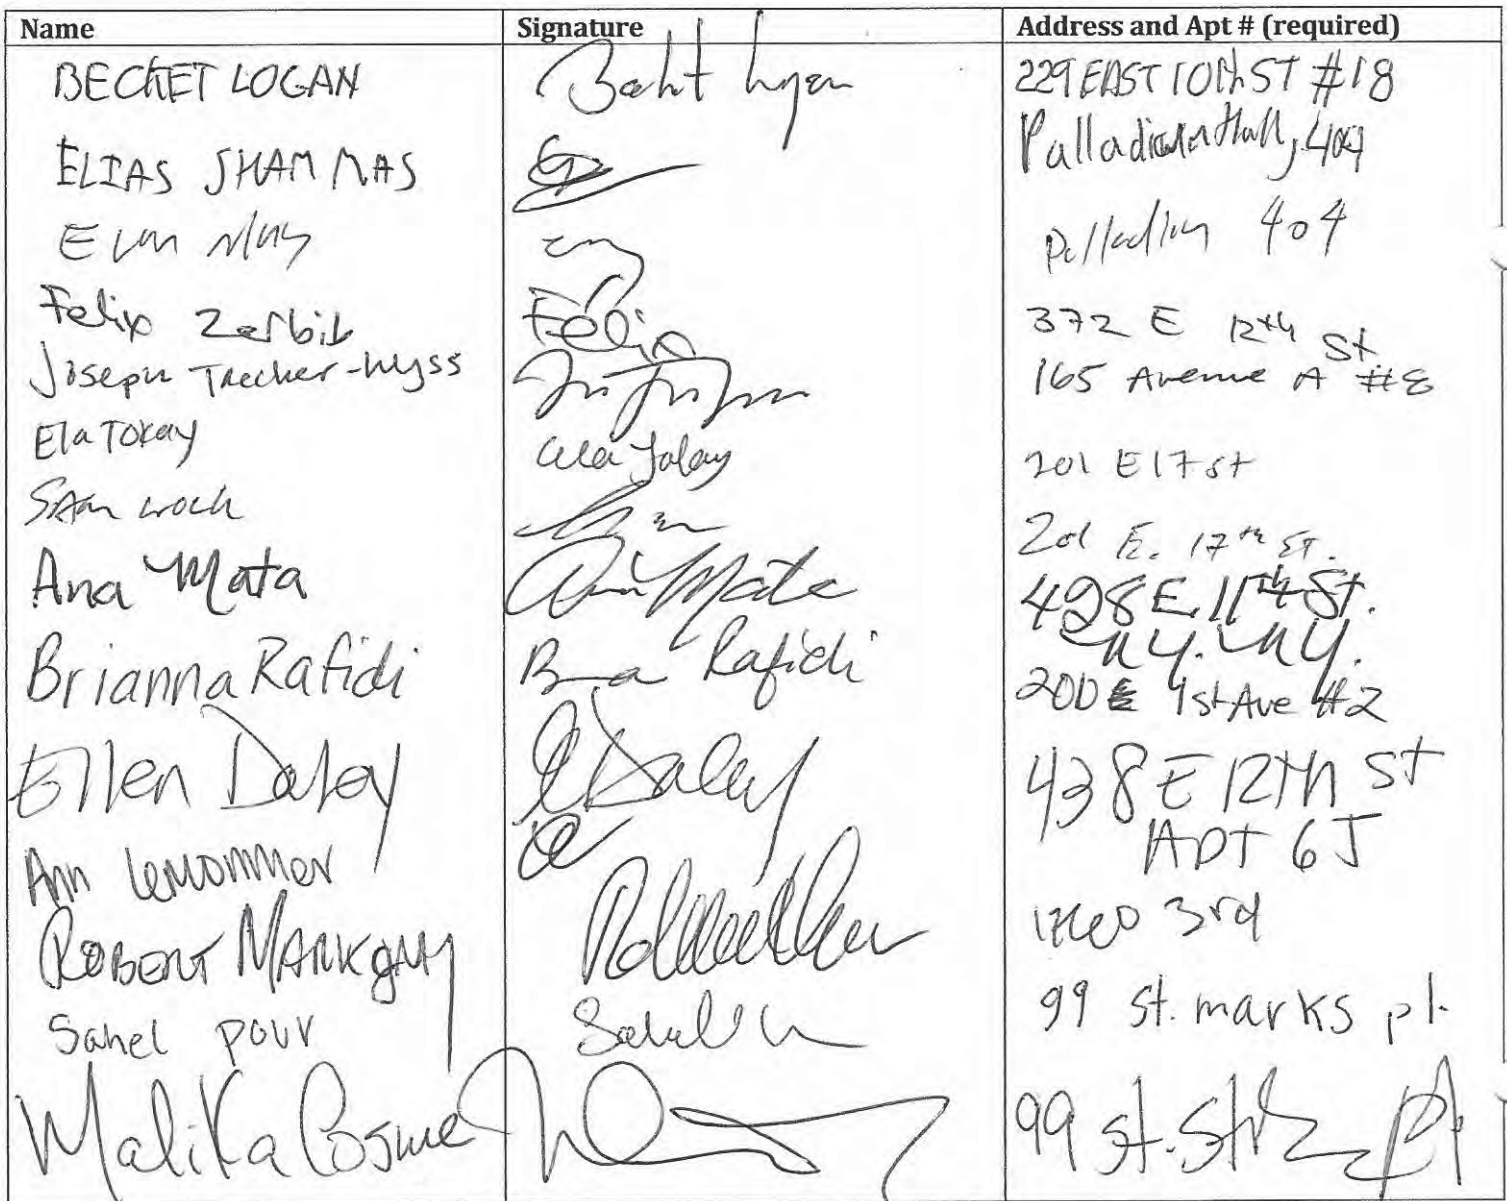 Name Signature Address and Apt # (required)
BECKET LOGAN 229 EAST 10th ST #18
ELIAS SHAMMAS Palladium Hall, 404
Evan 404
Felix Zerbib Felix 372 E 12th St
Joseph Trecker-Wyss 165 Avenue A #8
Ela Tokay Ela Tokay 201 E 17 st
Sam 201 E. 17th ST.
Ana Mata Ana Mata 428 E. 11th St.
N.Y. N.Y.
Brianna Rafidi B a Rafidi 200 1st Ave #2
Ellen Daley E Daley 438 E 12th St
Apt 6J
Ann Lemonnier
ROBERT 3rd
Sahel pour 99 st. marks pl.
Malika Cosme 99 st. pl